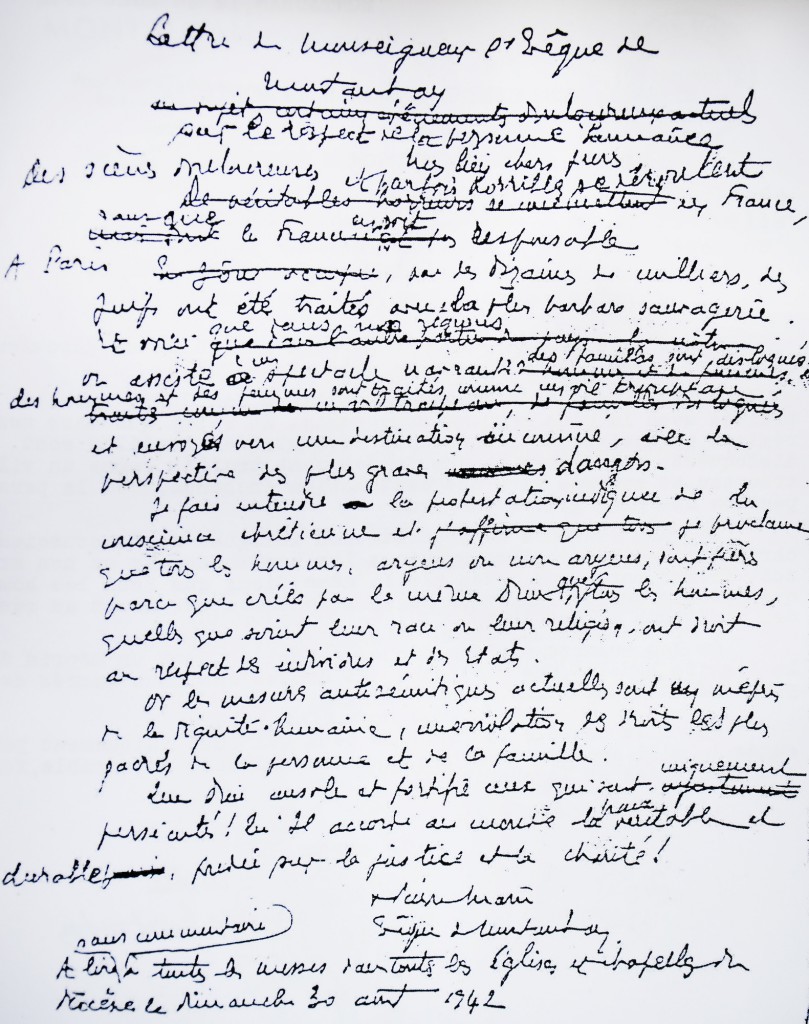 Lettre de Monseigneur l'Evêque de
Montauban
au sujet certains événements douloureux actuels
sur le respect de la personne humaine
Mes biens chers frères
des scènes douloureuses et parfois horribles se déroulent
de véritables horreurs se commettent en France,
sans que la France en soit responsable
A Paris, par des dizaines de milliers, des
juifs ont été traités avec la plus barbare sauvagerie.
Et voici que dans nos régions
on assiste à un spectacle navrant: des familles sont disloquées.
des hommes et des femmes sont traités comme un vil troupeau
et envoyés vers une destination inconnue, avec la
perspective des plus graves dangers.
Je fais entendre la protestation indignée de la
conscience chrétienne et j'affirme que tous je proclame
que tous les hommes, aryens ou non aryens, sont frères
parce que créés par le même Dieu, que tous les hommes,
quelles que soient leur race ou leur religion, ont droit
au respect des individus et des Etats.
Or les mesures antisémitiques actuelles sont un mépris
de la dignité humaine, une violation des droits les plus
sacrés de la personne et de la famille.
Que Dieu console et fortifie ceux qui sont iniquement
persécutés! Qu'Il accorde au monde la paix véritable et
durable, fondée sur la justice et la charité!
Pierre Marie
Evêque de Montauban
sans commentaire
A lire à toutes les messes dans toutes les Eglises et chapelles du
diocèse le dimanche 30 août 1942